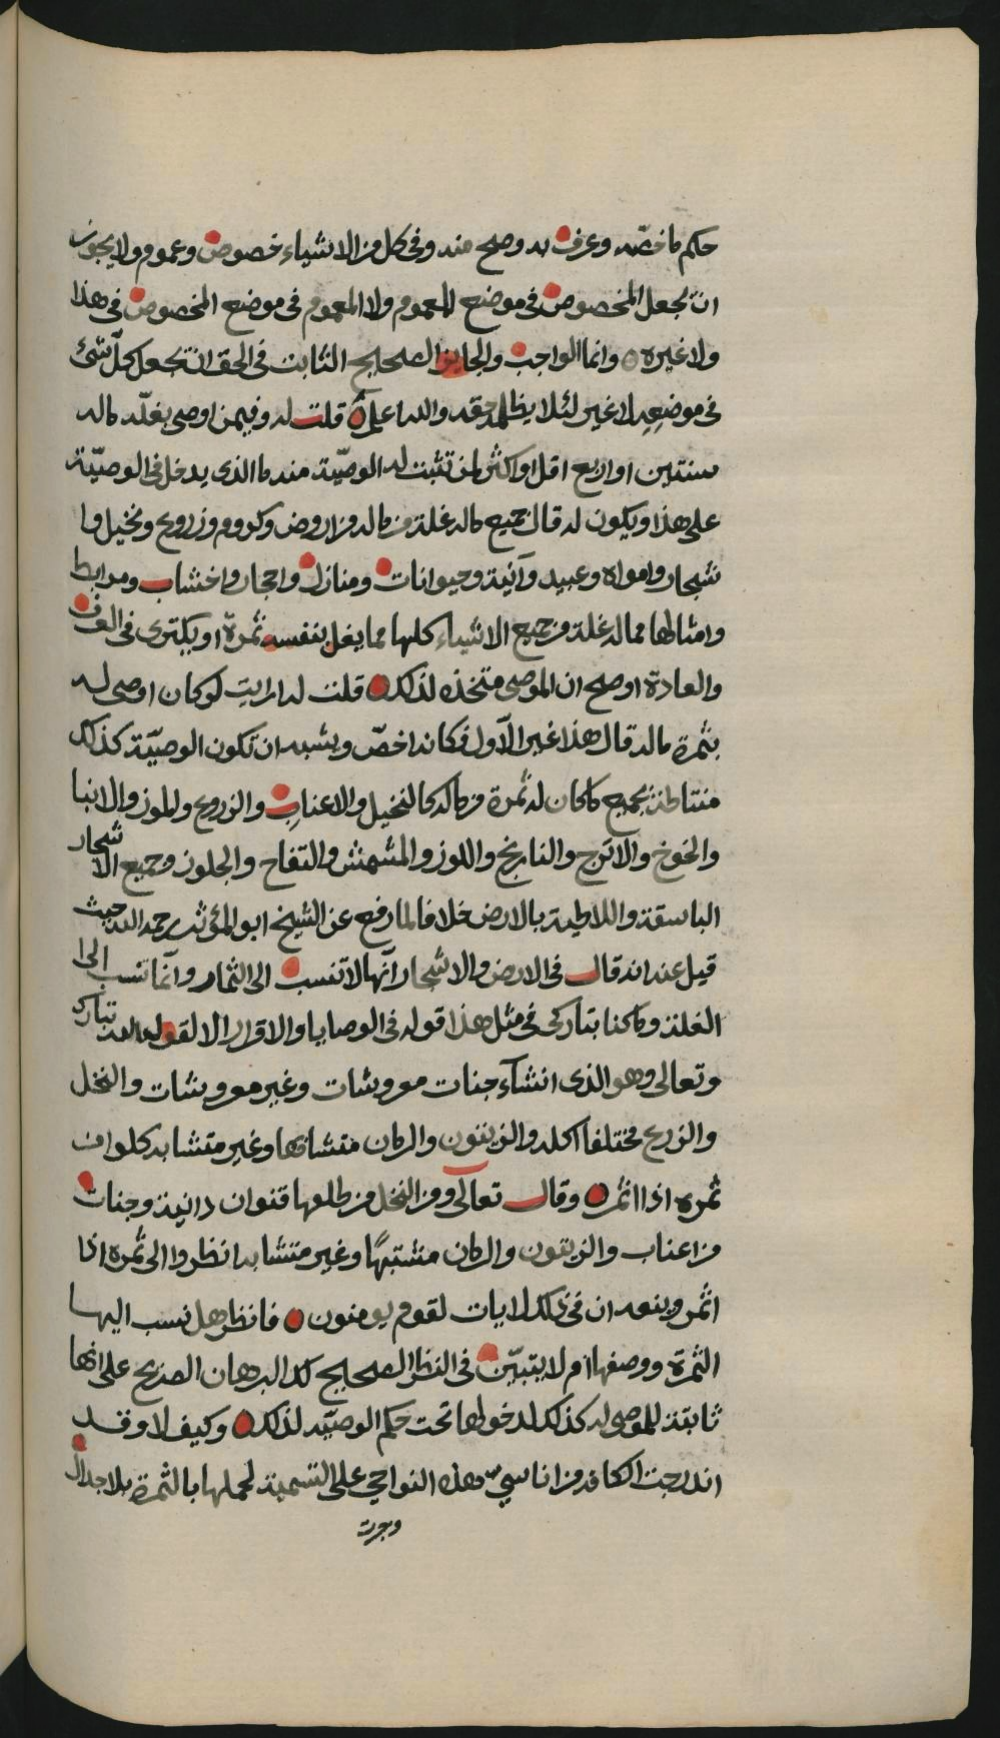 حكم ما خصّه وعرف به وصلح منه وفى كل من الاشياء خصوص وعموم ولا يجوز
ان يجعل المخصوص فى موضع المعموم ولا المعموم فى موضع المخصوص فى هذا
ولا غيره ○ وانما الواجب والجايز الصحيح الثابت فى الحق ان تجعل كلّ شئ
فى موضعه لا غير لئلا يظلمه حقه والله اعلم قلت له وفيمن اوصى بغلّة ماله
سنتين او اربع اقل او اكثر لمن تثبت له الوصيّة منه ما الذى يدخل فى الوصيّة
على هذا ويكون له قال جميع ماله غلة من ماله من اروض وكروم وزروع ونخيل وا
شجار وامواه وعبيد وآنية وحيوانات ومنازل واحجار واخشاب ومرابط
وامثالها مما له غلة من جميع الاشياء كلها مما يغل بنفسه ثمرة او يكترى فى العرف
والعادة او صلح ان الموصى متخذه لذلك قلت له ارايت لو كان اوصى له
بثمرة ماله قال هذا غير الاول فكانه اخصّ ويشبه ان تكون الوصيّة كذلك
بجميع ما كان له ثمرة من ماله كالنخيل والاعناب والزروع والموز والانبا
والخوخ والاترج والنارنج واللوز والمشمش والتفاح والجلوز وجميع الاشجار
الباسقة واللاطية بالارض خلافا لما رفع عن الشيخ ابو المؤثر رحمه الله حيث
قيل عنه انه قال فى الارض والاشجار انها لا تنسب الى الثمار وانما تنسب الى ا
الغلة وما كنا بتاركى فى مثل هذا قوله فى الوصايا والاقرار الا لقول الله تبارك
وتعالى وهو الذى انشآء جنات معروشات وغير معروشات والنخل
والزرع مختلفا اكله والزيتون والرمان متشابها وغير متشابه كلوا من
ثمره اذا اثمر وقال تعالى ومن النخل من طلعها قنوان دانية وجنات
من اعناب والزيتون والرمان مشتبهًا وغير متشابه انظروا الى ثمره اذا
اثمر وينعه ان فى ذلك لايات لقوم يومنون فانظر هل نسب اليها
الثمرة ووصفها ام لا يتبيّن فى النظر الصحيح لك البرهان الصريح على انها
ثابتة للموصى له كذلك لدخولها تحت حكم الوصيّه لذلك وكيف لا وقد
اندرجت الكافة من اناسي هذه النواحي على التسمية لحملها بالثمرة بلا جدال
وجرت